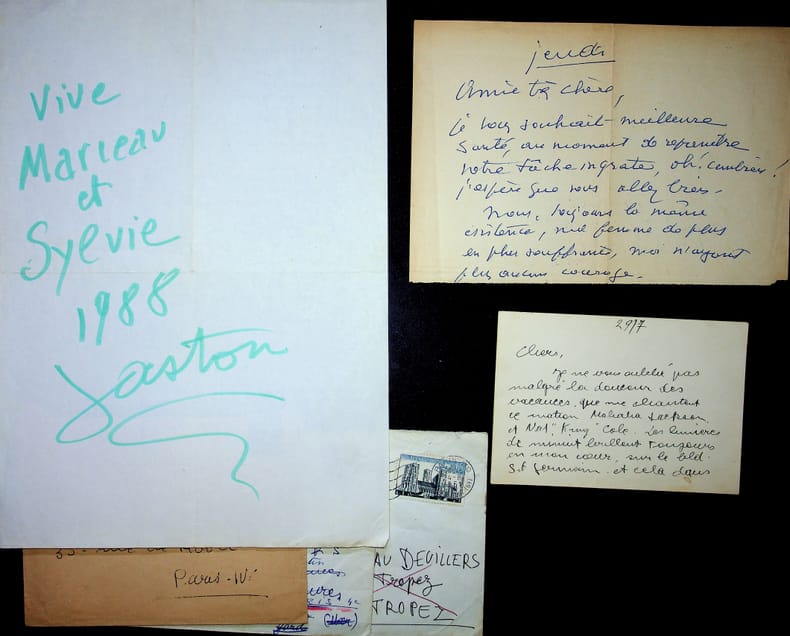 Vive
Marceau
et
Sylvie
1988
Gaston
jeudi
Amie très chère,
je vous souhait meilleure
santé, au moment de reprendre
votre tâche ingrate, oh! combien!
j'espère que vous allez bien.
Nous, toujours la même
existence, ma femme de plus
en plus souffrante, moi n'ayant
plus aucun courage.
29/7
Chers,
Je ne vous oublie pas
malgré la douceur des
vacances que me chantent
ce matin Mahalia Jackson
et Nat "King" Cole. Les lumières
de minuit brillent toujours
en mon cœur, sur le bld.
St Germain et cela dans
rue de
Paris-IVe
AU DEVILLERS
Tropez
TROPEZ